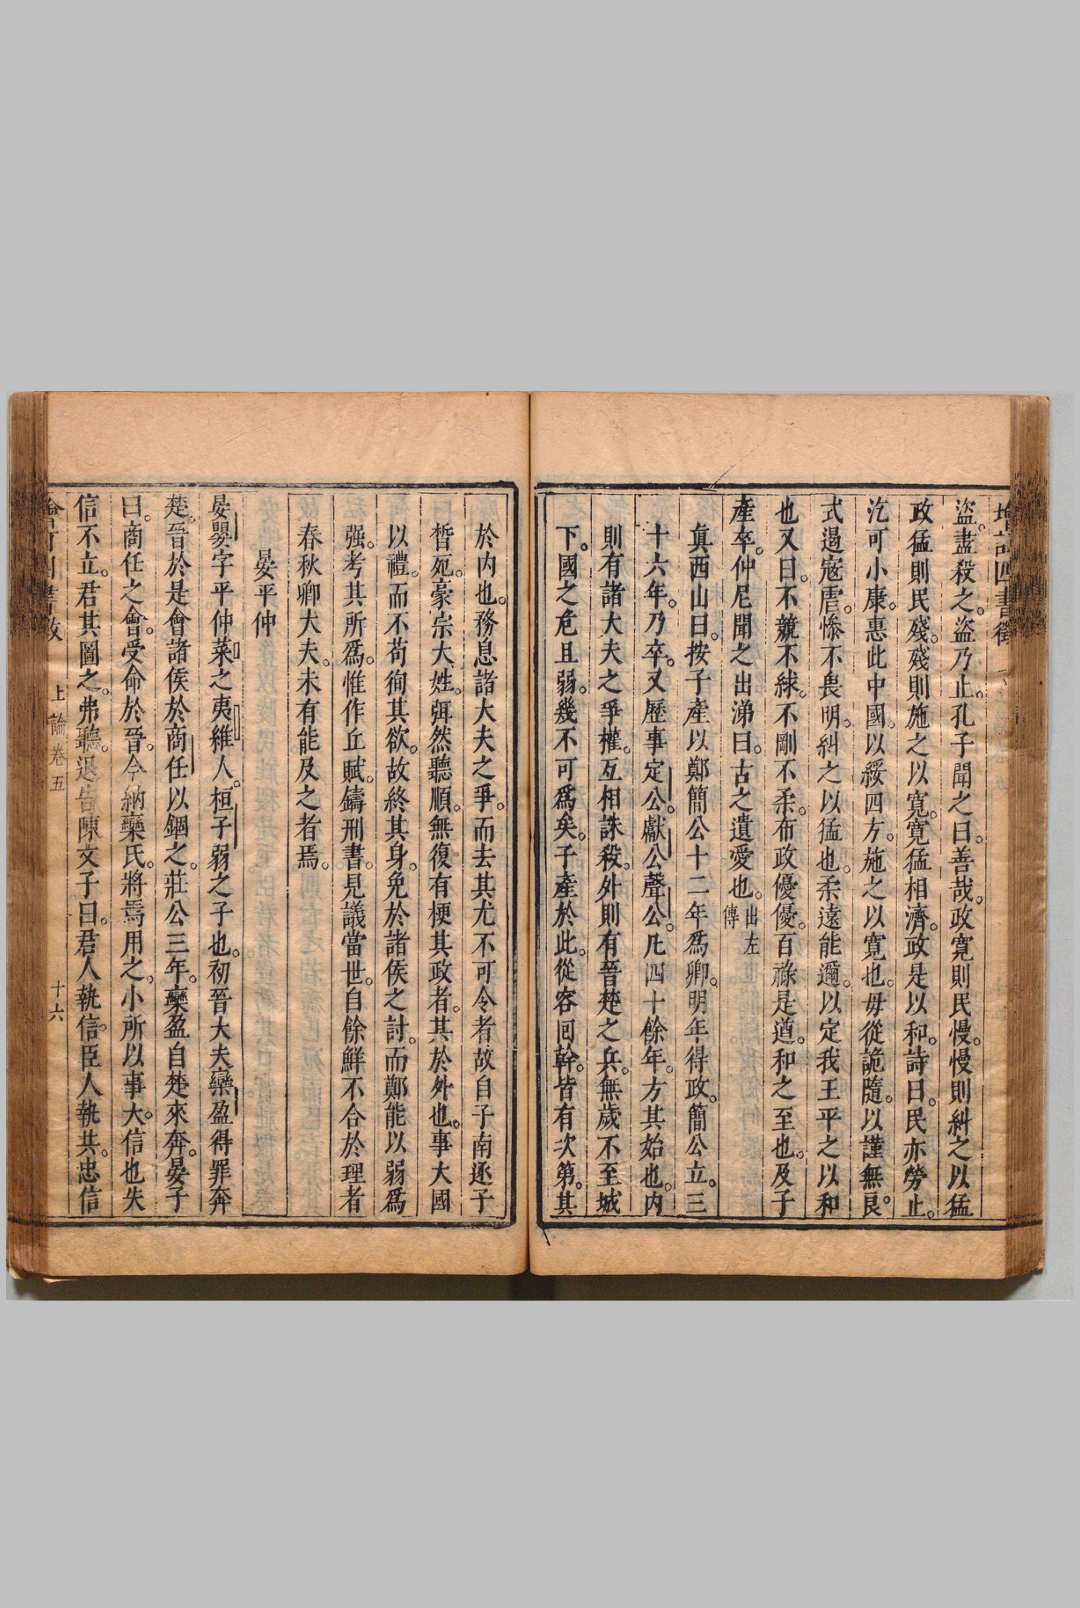 盜。盡殺之。盜乃止。孔子聞之曰。善哉。政寛則民慢。慢則糾之以猛
政猛則民殘。殘則施之以寛。寛猛相濟。政是以和。詩曰。民亦勞止。
汔可小康。惠此中國。以綏四方。施之以寛也。毋從詭隨。以謹無良。
式遏寇虐。慘不畏明。糾之以猛也。柔遠能邇。以定我王。平之以和
也。又曰。不競不絿。不剛不柔。布政優優。百祿是遒。和之至也。及子
產卒。仲尼聞之出涕曰。古之遺愛也。出左傳
眞西山曰。按子產以鄭簡公十二年爲卿。明年得政。簡公立。三
十六年。乃卒。又歷事定公。獻公聲公。凡四十餘年。方其始也。内
則有諸大夫之爭權。互相誅殺。外則有晉楚之兵。無歲不至城
下。國之危且弱。幾不可爲矣。子產於此。從容囘幹。皆有次第。其
於内也。務息諸大夫之爭。而去其尤不可令者。故自子南逐子
晳死。豪宗大姓。弭然聽順。無復有梗其政者。其於外也。事大國
以禮。而不苟徇其欲。故終其身。免於諸侯之討。而鄭能以弱爲
强。考其所爲。惟作丘賦。鑄刑書。見議當世。自餘鮮不合於理者
春秋卿大夫。未有能及之者焉。
晏平仲
晏嬰字平仲。萊之夷維人。桓子弱之子也。初晉大夫欒盈得罪奔
楚。晉於是會諸侯於商任以錮之。莊公三年。欒盈自楚來奔。晏子
曰。商任之會。受命於晉。今納欒氏。將焉用之。小所以事大。信也。失
信不立。君其圖之。弗聽。退告陳文子曰。君人執信。臣人執共。忠信
上論卷五
十六